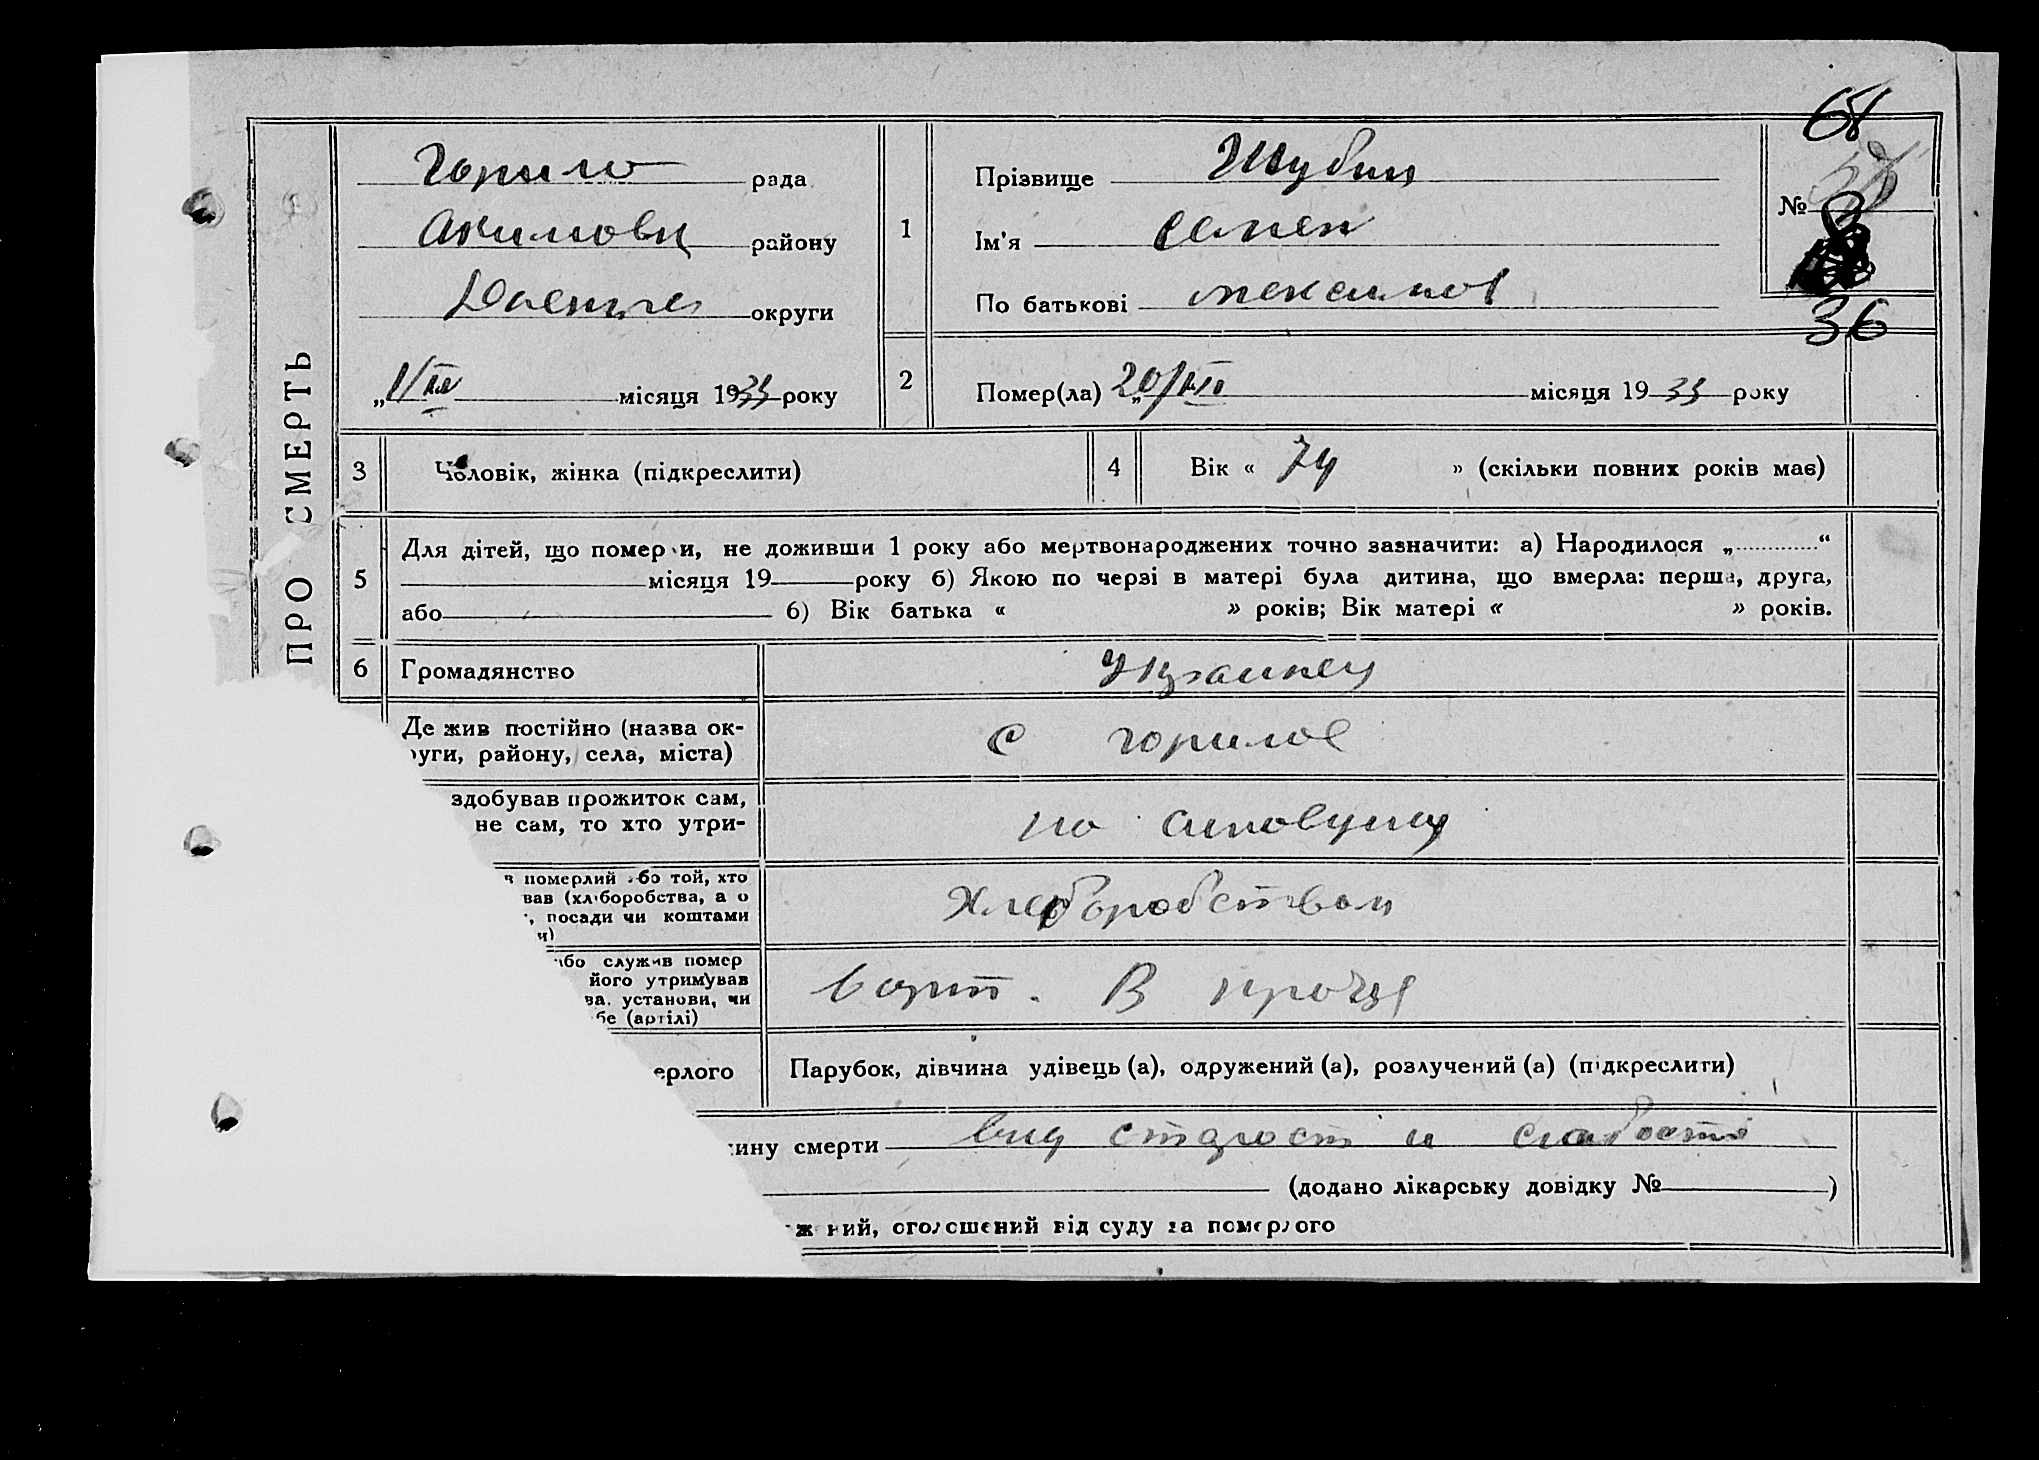 ПРО СМЕРТЬ
рада
району
округи
„1/III місяця 1933 року
1
Прізвище Шубин
Ім'я семен
По батькові максимов
№
68
36
2
Помер(ла) „20/ місяця 19 33 року
3
Чоловік, жінка (підкреслити)
4
Вік « 74 » (скільки повних років має)
5
Для дітей, що померли, не доживши 1 року або мертвонароджених точно зазначити: а) Народилося „ “
місяця 19 року б) Якою по черзі в матері була дитина, що вмерла: перша, друга,
або б) Вік батька « » років; Вік матері « » років.
6
Громадянство
Украинец
Де жив постійно (назва ок-
руги, району, села, міста)
с горилое
здобував прожиток сам,
не сам, то хто утри-
в померлий або той, хто
вав (хліборобства, а о
, посади чи коштами
и)
Хлеборобством
або служив помер
його утримував
ва, установи, чи
бе (артілі)
В
ерлого
Парубок, дівчина удівець (а), одружений (а), розлучений (а) (підкреслити)
ину смерти вид старост и слабости
(додано лікарську довідку № )
ж ний, оголошений від суду за померлого